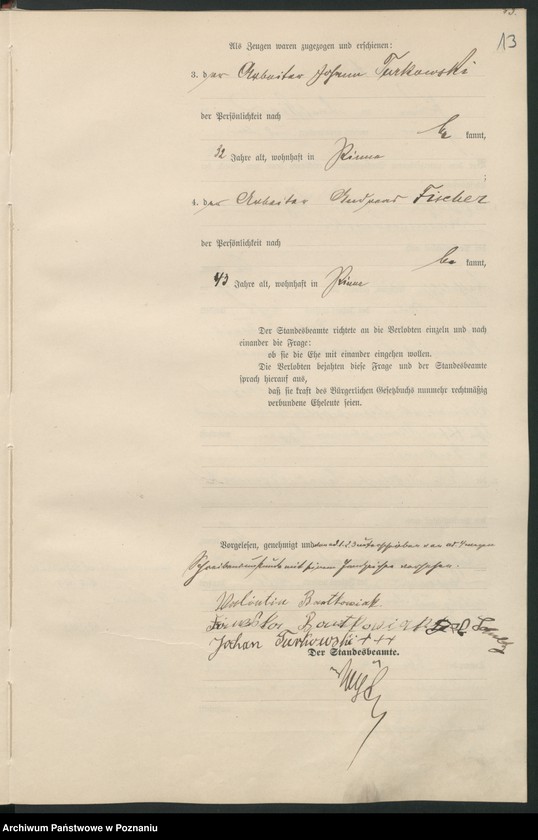 13
Als Zeugen waren zugezogen und erschienen:
3. der Arbeiter Johann Turkowski
der Persönlichkeit nach
be kannt,
32 Jahre alt, wohnhaft in Pinne
4. der Arbeiter Andreas Fischer
der Persönlichkeit nach
be kannt,
43 Jahre alt, wohnhaft in Pinne
Der Standesbeamte richtete an die Verlobten einzeln und nach
einander die Frage:
ob sie die Ehe mit einander eingehen wollen.
Die Verlobten bejahten diese Frage und der Standesbeamte
sprach hierauf aus,
daß sie kraft des Bürgerlichen Gesetzbuchs nunmehr rechtmäßig
verbundene Eheleute seien.
Vorgelesen, genehmigt und
mit seinem Handzeichen versehen.
Valentin Bartkowiak
Bartkowiak
Johan Turkowski +++
Der Standesbeamte.
Archiwum Państwowe w Poznaniu